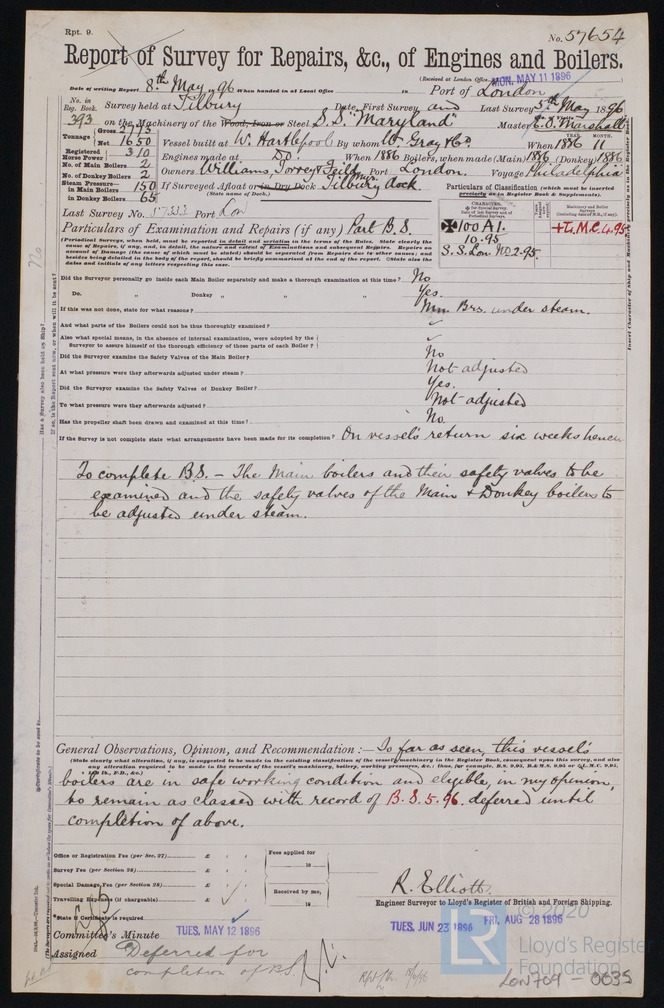 Rpt. 9.
No. 57654
Report of Survey for Repairs, &c., of Engines and Boilers.
(Received at London Office MON. MAY 11 1896 )
Date of writing Report 8th May 96 When handed in at Local Office in Port of London
No. in Reg. Book. Survey held at Tilbury Date, First Survey and Last Survey 5th May 1896
393 on the Machinery of the Wood, Iron or Steel S.S. "Maryland" Master E.O. Marshall
Tonnage Gross 2775
Net 1650
Vessel built at W. Hartlepool By whom W. Gray & Co. When 1886 YEAR. 11 MONTH.
Registered Horse Power 310
Engines made at Do. When 1886 Boilers, when made (Main) 1886 (Donkey) 1886
No. of Main Boilers 2
No. of Donkey Boilers 2
Owners Williams, Torrey & Feild Port London. Voyage Philadelphia
Steam Pressure—
in Main Boilers 150
in Donkey Boilers 65
If Surveyed Afloat or in Dry Dock Tilbury dock
(State name of Dock.)
Particulars of Classification (which must be inserted precisely as in Register Book & Supplements).
Last Survey No. 57333 Port Lon
100 A1.
10.95
S.S. Lon No2-95
+L.M.C. 4.95
Particulars of Examination and Repairs (if any) Part B.S.
(Periodical Surveys, when held, must be reported in detail and seriatim in the terms of the Rules. State clearly the
Did the Surveyor personally go inside each Main Boiler separately and make a thorough examination at this time? No
Do. " Donkey " " " Yes.
If this was not done, state for what reasons? Mn. Brs. under steam.
And what parts of the Boilers could not be thus thoroughly examined?
Also what special means, in the absence of internal examination, were adopted by the
Surveyor to assure himself of the thorough efficiency of those parts of each Boiler?
Did the Surveyor examine the Safety Valves of the Main Boiler? No
At what pressure were they afterwards adjusted under steam? Not adjusted
Did the Surveyor examine the Safety Valves of Donkey Boiler? Yes.
To what pressure were they afterwards adjusted? Not adjusted
Has the propeller shaft been drawn and examined at this time? No.
If the Survey is not complete state what arrangements have been made for its completion? On vessel's return six weeks hence
To complete B.S. — The Main boilers and their safety valves to be
examined and the safety valves of the Main & Donkey boilers to
be adjusted under steam.
General Observations, Opinion, and Recommendation :— So far as seen, this vessel's
boilers are in safe working condition and eligible, in my opinion,
to remain as classed with record of B.S. 5.96. deferred until
completion of above.
Office or Registration Fee (per Sec. 27) £
Survey Fee (per Section 28) £
Special Damage Fee (per Section 28) £
Travelling Expenses (if chargeable) £
Fees applied for
18
Received by me,
18
R. Elliott.
Engineer Surveyor to Lloyd's Register of British and Foreign Shipping.
*State if Certificate is required
Committee's Minute TUES. MAY 12 1896
TUES. JUN 23 1896
FRI. AUG 28 1896
Assigned Deferred for
completion of BS
© 2020
LR
Lloyd's Register
Foundation
LON709 - 0035